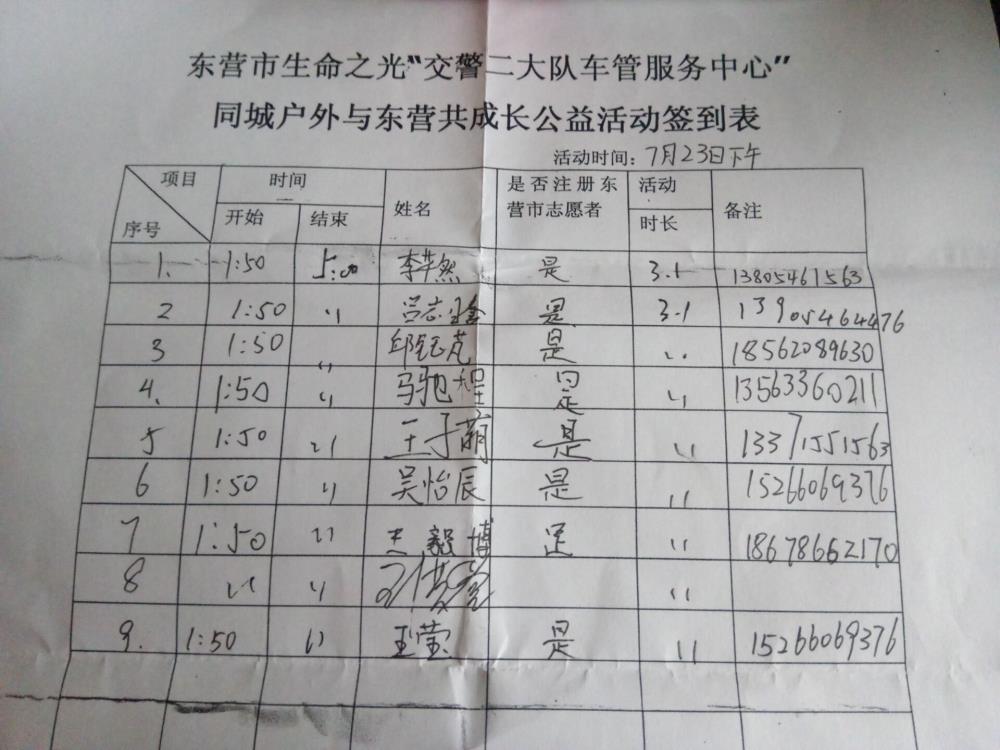 东营市生命之光“交警二大队车管服务中心”
同城户外与东营共成长公益活动签到表
活动时间：7月23日下午
项目 时间 姓名 是否注册东营市志愿者 活动时长 备注
序号 开始 结束
1. 1:50 5:00 李芊然 是 3.1 13805461563
2 1:50 〃 吕志 是 3.1 13905464476
3 1:50 〃 邱钰芃 是 〃 18562089630
4. 1:50 〃 马驰程 是 〃 13563360211
5 1:50 〃 王子萌 是 〃 13371551563
6 1:50 〃 吴怡辰 是 〃 15266069376
7 1:50 〃 王毅博 是 〃 18678662170
8 〃 〃 〃
9. 1:50 〃 王莹 是 〃 15266069376